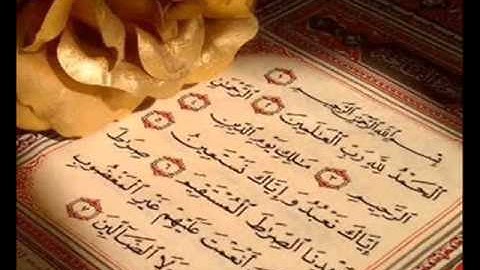 بِسْمِ ٱللَّهِ ٱلرَّحْمَٰنِ ٱلرَّحِيمِ ١
ٱلْحَمْدُ لِلَّهِ رَبِّ ٱلْعَٰلَمِينَ ٢ ٱلرَّحْمَٰنِ
ٱلرَّحِيمِ ٣ مَٰلِكِ يَوْمِ ٱلدِّينِ ٤
إِيَّاكَ نَعْبُدُ وَإِيَّاكَ نَسْتَعِينُ ٥
ٱلصِّرَٰطَ ٱلْمُسْتَقِيمَ ٦ صِرَٰطَ
أَنْعَمْتَ عَلَيْهِمْ غَيْرِ ٱلْمَغْضُوبِ
لَا ٱلضَّآلِّينَ ٧